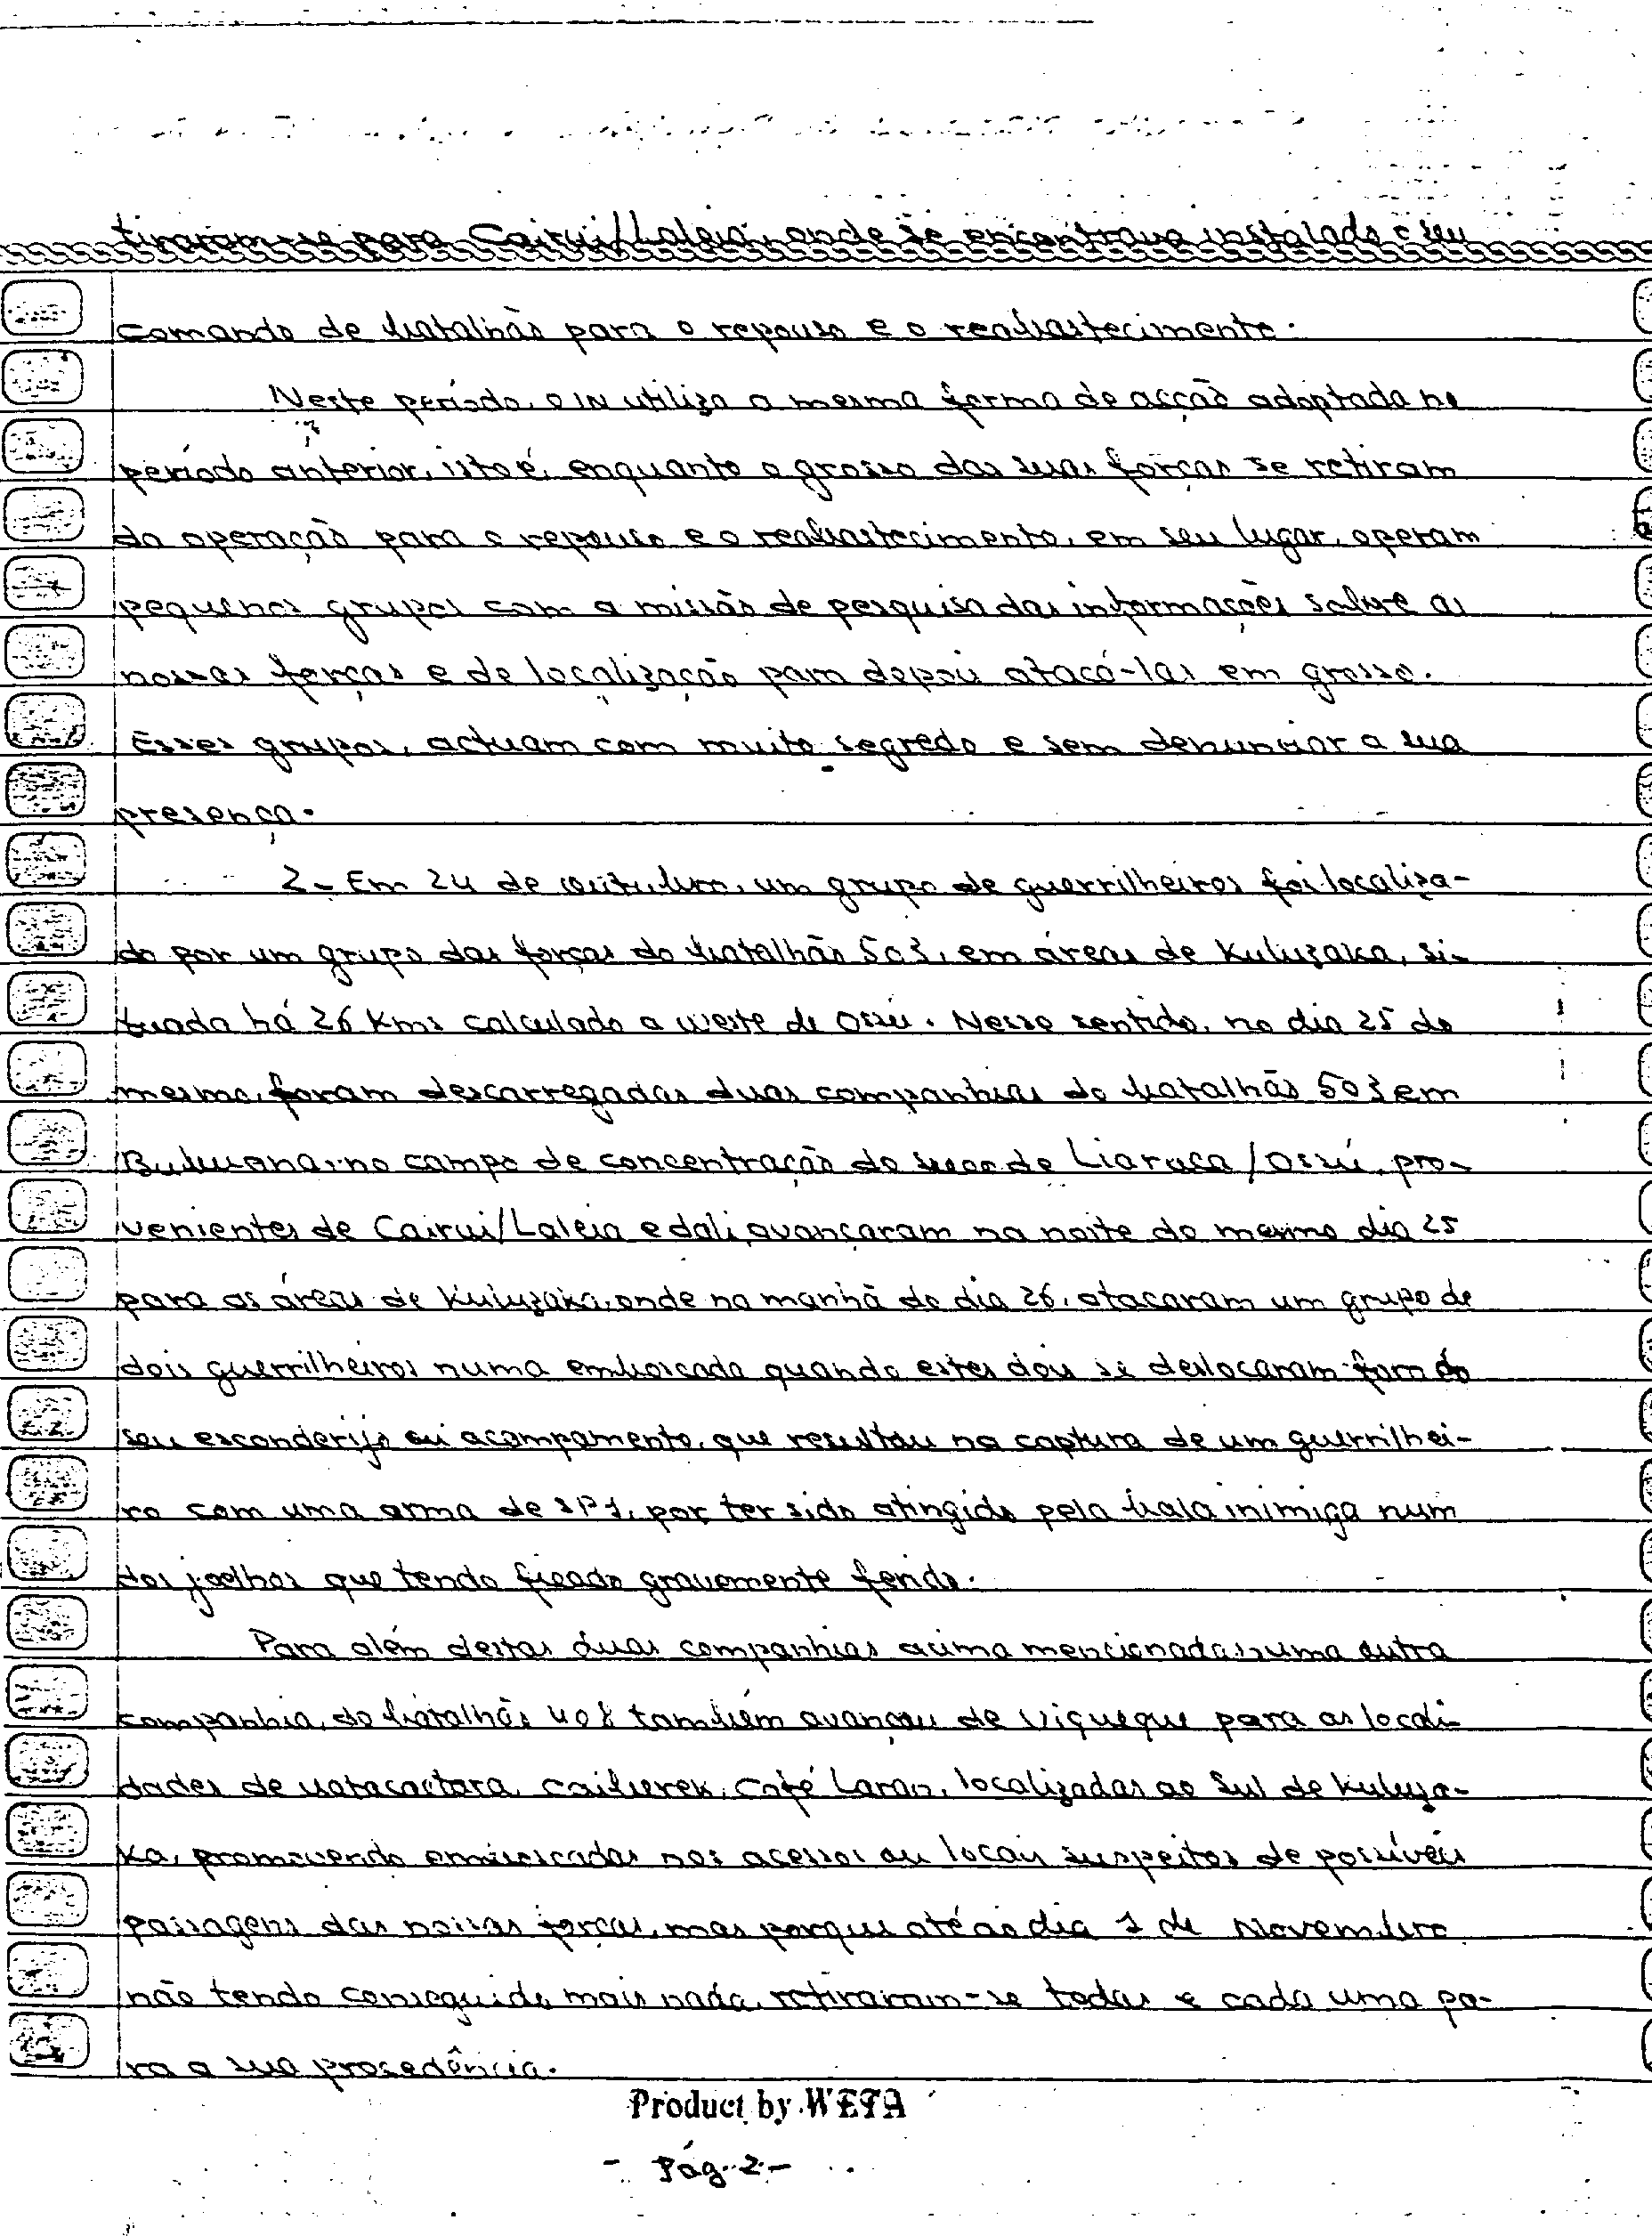 tiraram-se para Cairui/Laleia, onde se encontrava instalado o seu
comando de batalhão para o repouso e o reabastecimento.
Neste período, o IN utiliza a mesma forma de acção adoptada no
período anterior, isto é, enquanto o grosso das suas forças se retiram
da operação para o repouso e o reabastecimento, em seu lugar, operam
pequenos grupos com a missão de pesquisa das informações sobre as
nossas forças e de localização para depois atacá-las em grosso.
Esses grupos, actuam com muito segredo e sem denunciar a sua
presença.
2- Em 24 de outubro, um grupo de guerrilheiros foi localiza-
do por um grupo das forças do batalhão 503, em áreas de Kulugaka, si-
tuada há 26 Kms calculado a weste de Ossú. Nesse sentido, no dia 25 do
mesmo, foram descarregadas duas companhias do batalhão 503 em
Bubuana, no campo de concentração do suco de Liaruca/Ossú, pro-
venientes de Cairui/Laleia e dali, avançaram na noite do mesmo dia 25
para as áreas de Kulugaka, onde na manhã do dia 26, atacaram um grupo de
dois guerrilheiros numa emboscada quando estes dois se deslocaram fora do
seu esconderijo ou acampamento, que resultou na captura de um guerrilhei-
ro com uma arma de SP1, por ter sido atingido pela bala inimiga num
dos joelhos que tendo ficado gravemente ferido.
Para além destas duas companhias acima mencionadas, uma outra
companhia, do batalhão 408 também avançou de Viqueque para as locali-
dades de Café Laran, localizadas ao Sul de Kuluga-
ka, promovendo emboscadas nos acessos ou locais suspeitos de possíveis
passagens das nossas forças, mas porque até ao dia 1 de Novembro
não tendo conseguido mais nada, retiraram-se todas e cada uma pa-
ra a sua procedência.
Product by WETA
- Pág. 2 -